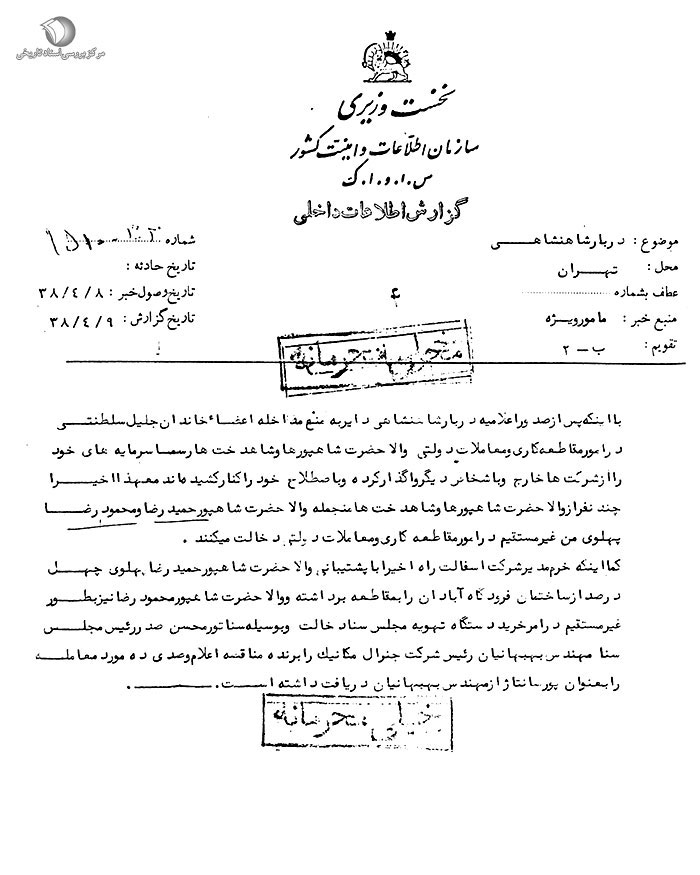 مرکز بررسی اسناد تاریخی
نخست وزیری
سازمان اطلاعات و امنیت کشور
س.ا.و.ا.ک
گزارش اطلاعات داخلی
موضوع : دربار شاهنشاهی
محل : تهران
عطف بشماره
منبع خبر : مامور ویژه
تقویم : ب - ۲
شماره
تاریخ حادثه :
تاریخ وصول خبر : ۳۸/٤/۸
تاریخ گزارش : ۳۸/٤/۹
٤
خیلی محرمانه
با اینکه پس از صدور اعلامیه دربار شاهنشاهی دایر به منع مداخله اعضاء خاندان جلیل سلطنتی
در امور مقاطعه کاری و معاملات دولتی والا حضرت شاهپورها و شاهدخت ها رسما سرمایه های خود
را از شرکت ها خارج و با شخاص دیگر واگذار کرده و باصطلاح خود را کنار کشیده اند معهذا اخیرا
چند نفر از والا حضرت شاهپورها و شاهدخت ها منجمله والا حضرت شاهپور حمید رضا و محمود رضا
پهلوی من غیر مستقیم در امور مقاطعه کاری و معاملات دولتی دخالت میکنند .
کما اینکه خرم مدیر شرکت اسفالت راه اخیرا با پشتیبانی والا حضرت شاهپور حمید رضا پهلوی چهل
درصد از ساختمان فرودگاه آبادان را بمقاطعه برداشته و والا حضرت شاهپور محمود رضا نیز بطور
غیر مستقیم در امر خرید دستگاه تهویه مجلس سنا دخالت و بوسیله سناتور محسن صدر رئیس مجلس
سنا مهندس بهبهانیان رئیس شرکت جنرال مکانیک را برنده مناقصه اعلام و صدی ده مورد معامله
را بعنوان پورسانتاژ از مهندس بهبهانیان دریافت داشته است .
خیلی محرمانه